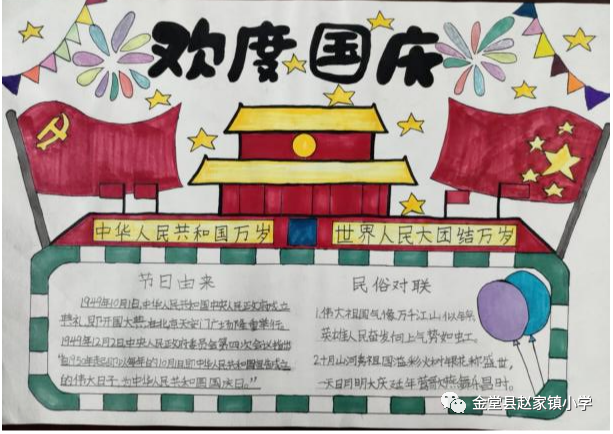 欢度国庆
中华人民共和国万岁
世界人民大团结万岁
节日由来
1949年10月1日,中华人民共和国中央人民政府成立
典礼,即开国大典,在北京天安门广场隆重举行。
1949年12月2日中央人民政府委员会第四次会议指出
"自1950年起,即以每年的10月1日,即中华人民共和国宣告成立
的伟大日子,为中华人民共和国国庆日。"
民俗对联
1.伟大祖国气像万千江山似锦
英雄人民奋发向上气势如虹
2.十月山河美祖国溢彩火树银花称盛世,
一天日月明大庆壮年莺歌燕舞昌时。
金堂县赵家镇小学